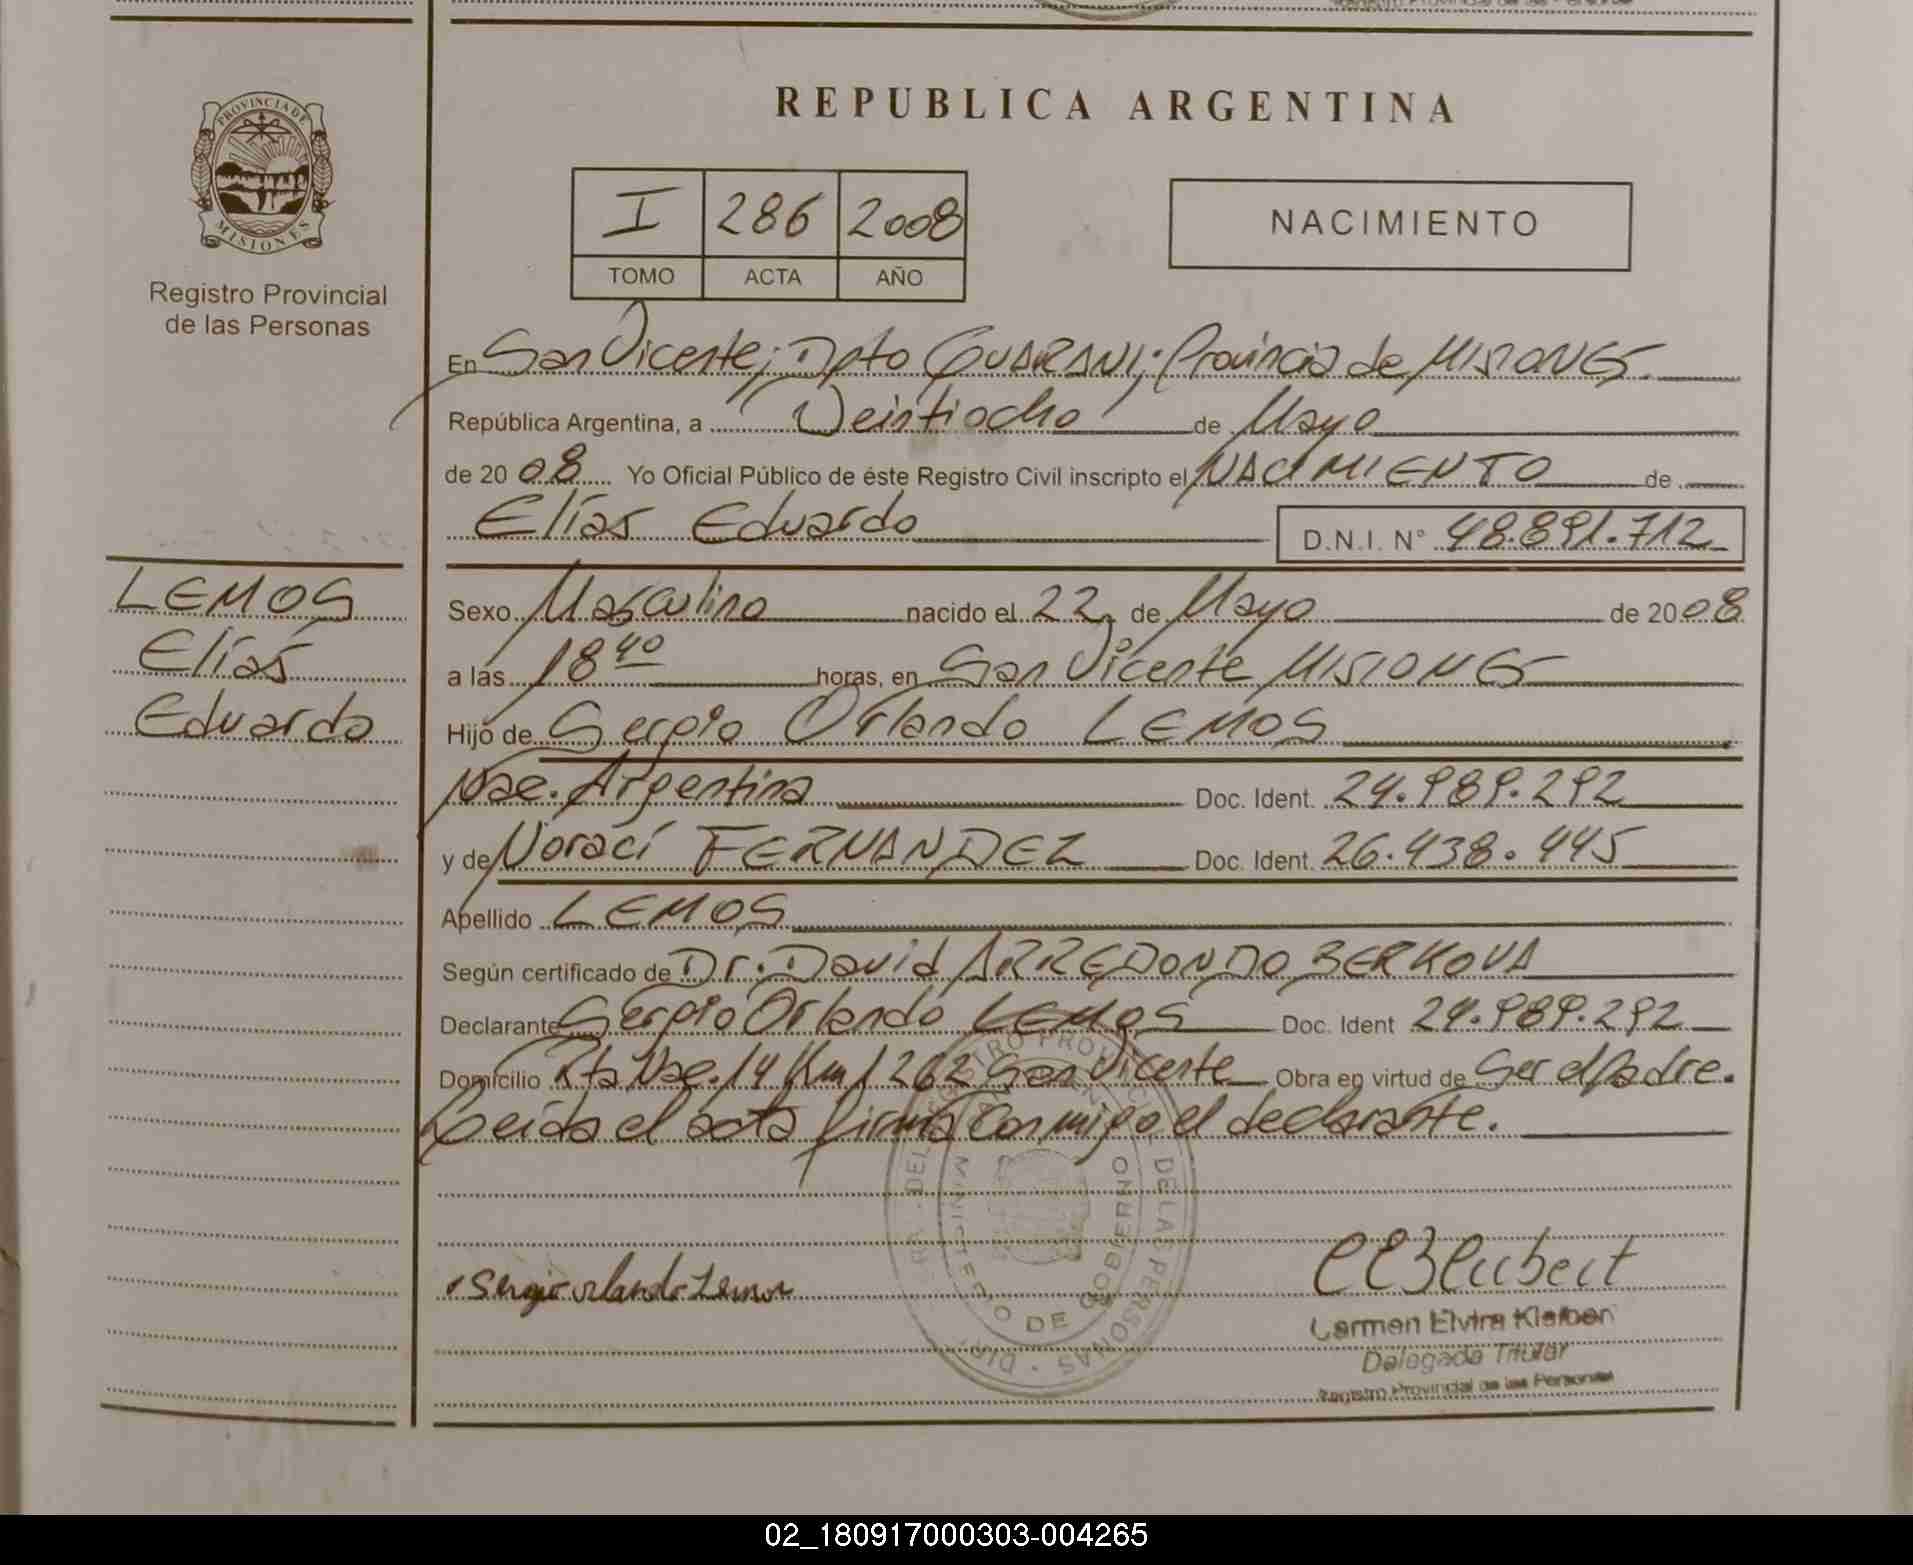 REPUBLICA ARGENTINA
PROVINCIA DE
MISIONES
Registro Provincial
de las Personas
I 286 2008
TOMO ACTA AÑO
NACIMIENTO
En San Vicente; Dpto GUARANI; Provincia de MISIONES.
República Argentina, a Veintiocho de Mayo
de 2008 Yo Oficial Público de éste Registro Civil inscripto el NACIMIENTO de
Elías Eduardo D.N.I. N° 48.891.712
LEMOS
Elías
Eduardo
Sexo Masculino nacido el 22 de Mayo de 2008
a las 18 40 horas, en San Vicente MISIONES
Hijo de Sergio Orlando LEMOS
Nac. Argentina Doc. Ident. 24.989.292
y de Noraci FERNANDEZ Doc. Ident. 26.438.445
Apellido LEMOS
Según certificado de Dr. David ARREDONDO BERKOVA
Declarante Sergio Orlando LEMOS Doc. Ident 24.989.292
Domicilio Rta Nac. 14 Km 1262 San Vicente Obra en virtud de Ser el padre.
Leída el acta firma conmigo el declarante.
REGISTRO PROVINCIAL DE LAS PERSONAS
MINISTERIO DE GOBIERNO
Sergio orlando Lemos
Carmen Elvira
Delegada Titular
Registro Provincial de las Personas
02_180917000303-004265